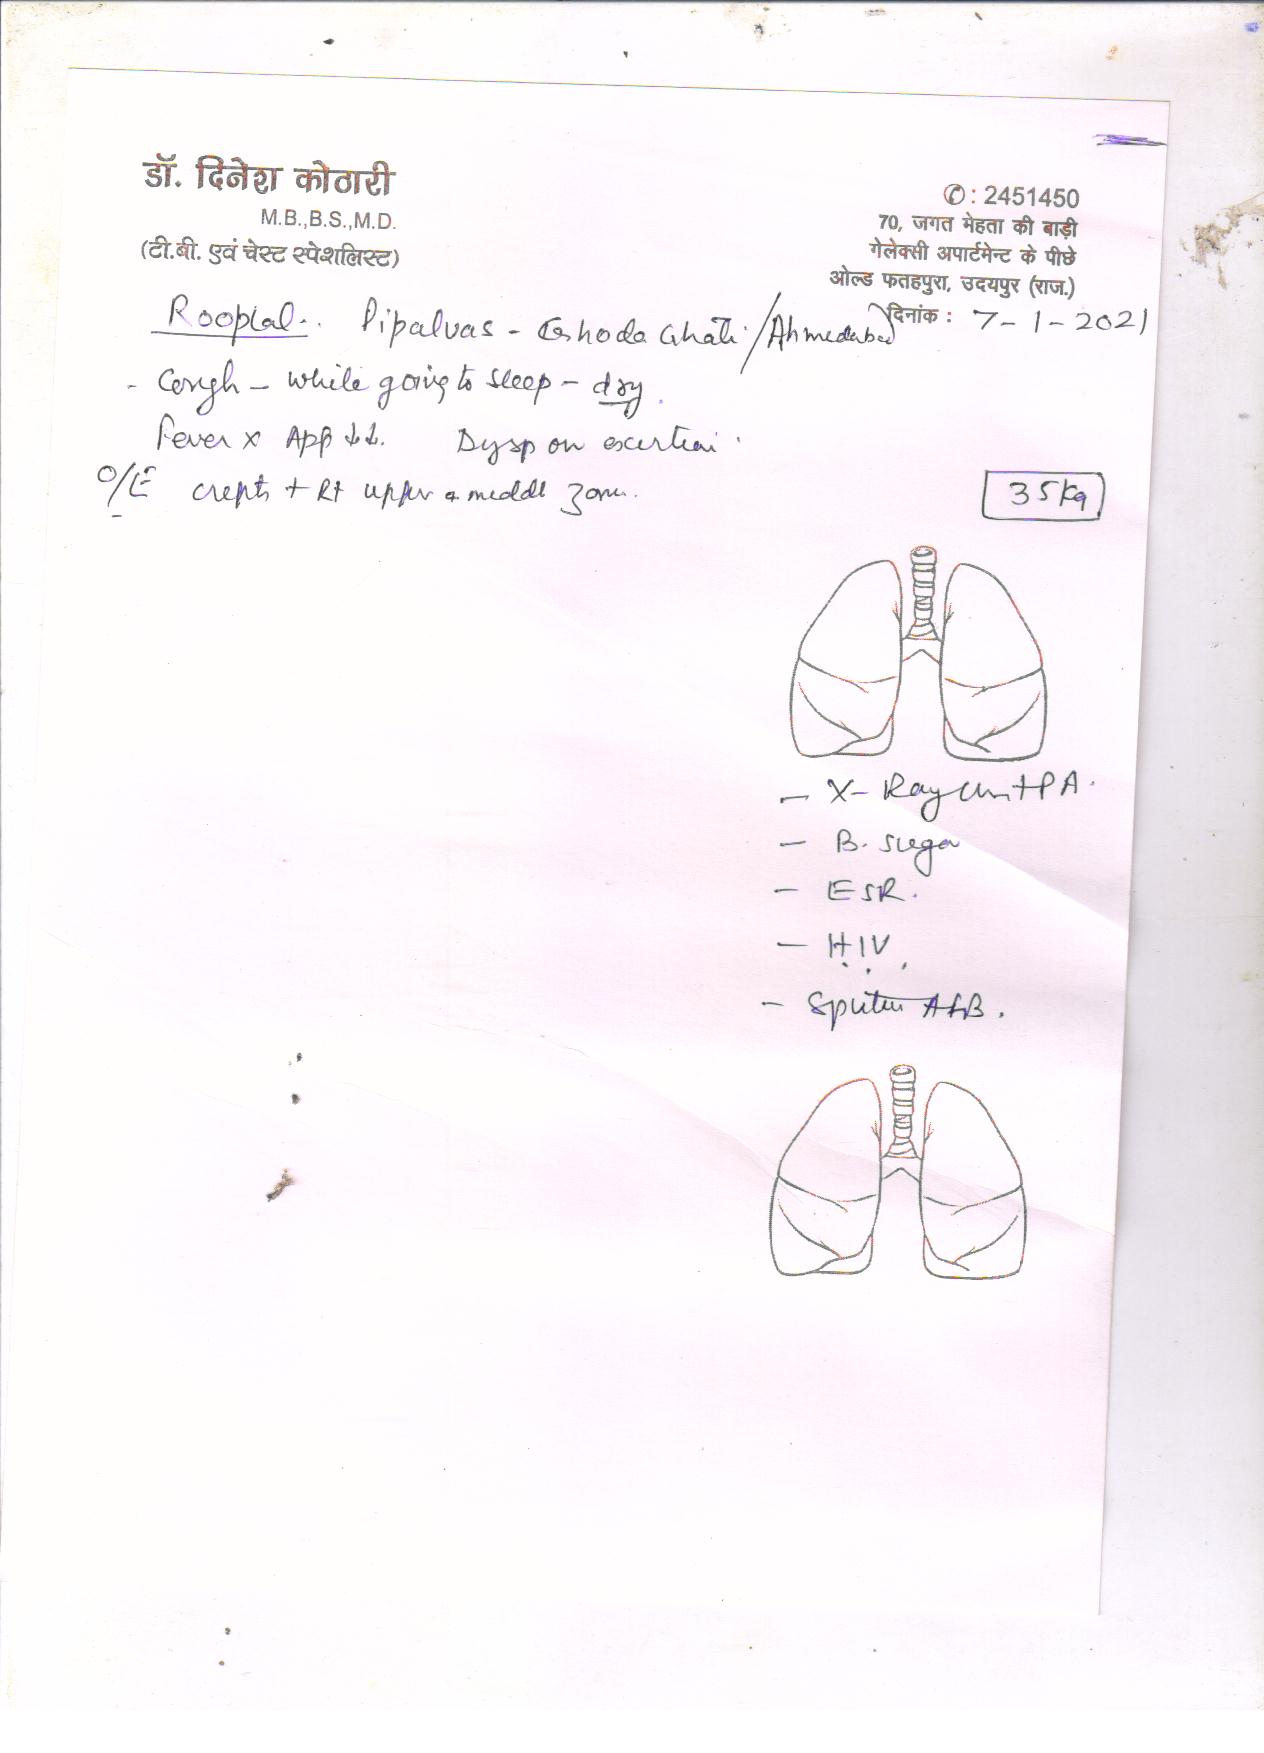 डॉ. दिनेश कोठारी
M.B.,B.S.,M.D.
(टी.बी. एवं चेस्ट स्पेशलिस्ट)
✆ : 2451450
70, जगत मेहता की बाड़ी
गेलेक्सी अपार्टमेन्ट के पीछे
ओल्ड फतहपुरा, उदयपुर (राज.)
दिनांक : 7-1-2021
Rooplal. Pipalvas - Ghoda Ghati / Ahmedabad
- Cough - while going to sleep - dry.
Fever x App ↓↓. Dysp on exertion.
O/E crepts + Rt upper & middle zone.
35 kg
- X-Ray Chest PA.
- B. sugar
- ESR.
- HIV
- Sputum AFB.